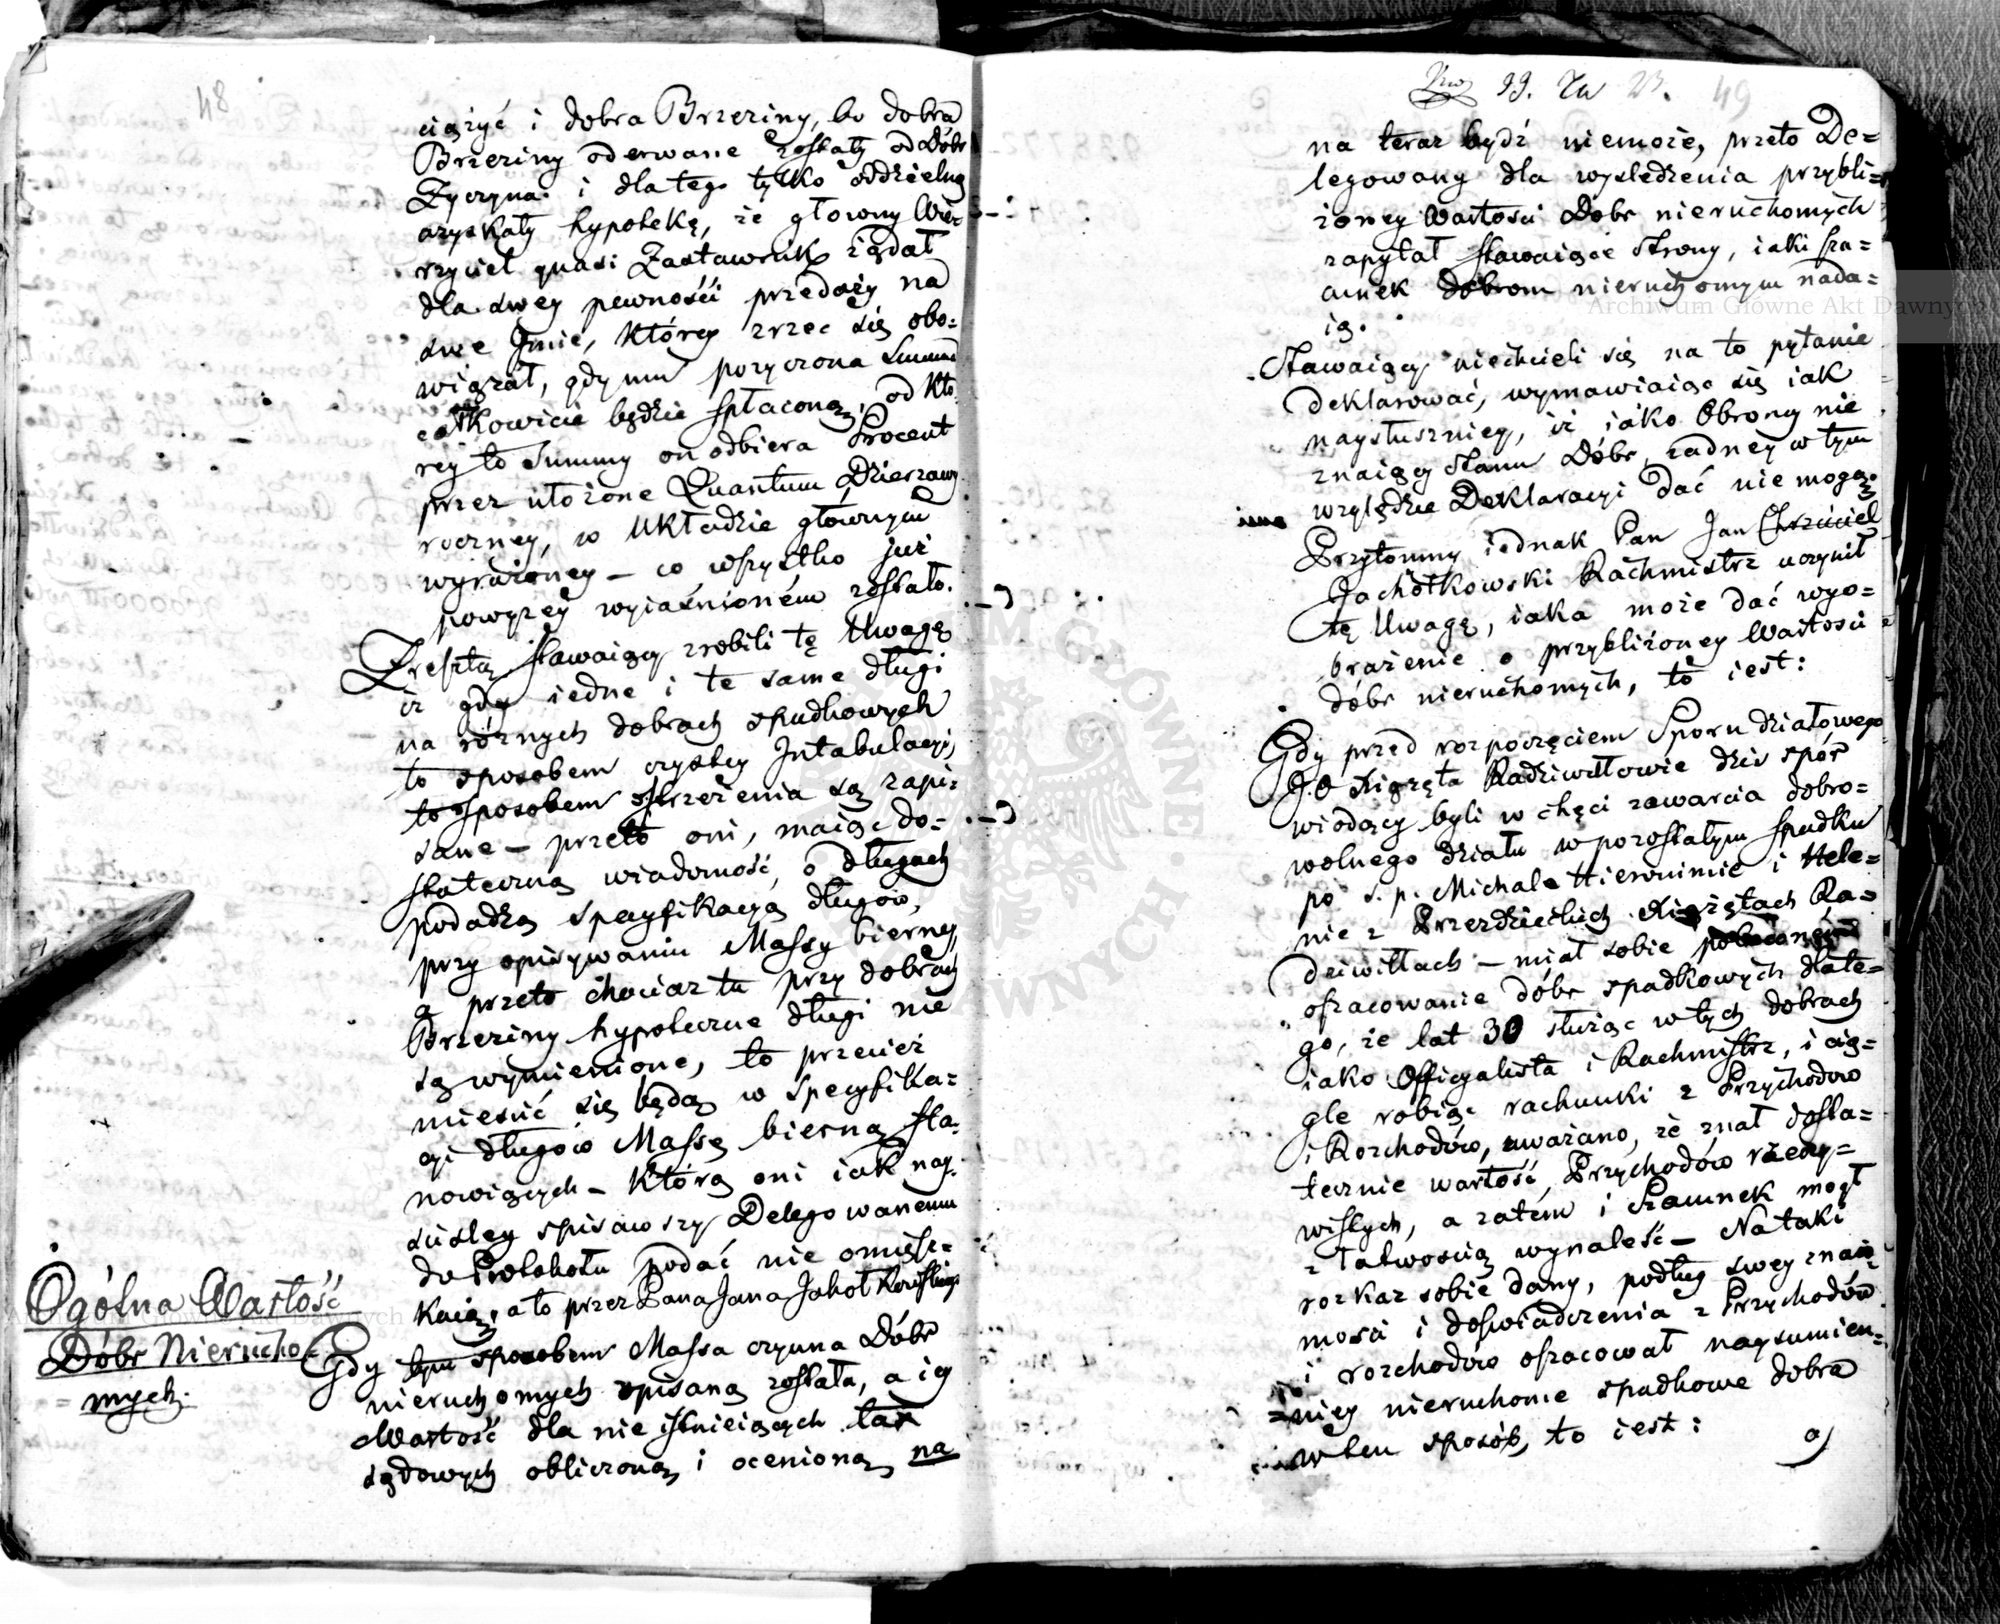 48
ciążyć i dobra Brzeziny, bo dobra
Brzeziny oderwane zostały od Dóbr
Zyczyna i dla tego tylko oddzielną
uzyskały hypotekę, że głowny Wie=
rzyciel quasi Zastawnik żądał
dla swey pewności przedaży na
swe Jmie, Którey zrzec się obo=
wiązał, gdy mu pozyczona Summa
całkowicie będzie spłaconą, od Któ
rey to Summy on odbiera Procent
przez ułożone Quantum Dzierzawy
roczney, w Układzie głównym
wyrażoney — co wszystko już
powyżey wyiaśnioném zostało.
Zresztą stawaiący zrobili tę Uwagę
iż gdy iedne i te same długi
na róznych dobrach spadkowych
to sposobem czystey Jntabulacyi,
to sposobem ostrzeżenia są zapi=
sane — przeto oni, maiąc do=
stateczną wiadomość, o długach
podadzą specyfikacyą długów,
przy opisywaniu Massy bierney,
a przeto chociaz tu przy dobrach
Brzeziny hypoteczne długi nie
są wymienione, to przecież
mieścić się będą w specyfika=
cyi długów Massę bierną sta=
nowiących — Którą oni iak nay=
ściśley spisawszy Delegowanemu
do Protokołu podać nie omiesz=
kaią, a to przez Pana Jana Jahołkowskiego
Ogólna Wartość
Dóbr Nierucho=
= mych.
Gdy tym sposobem Massa czynna Dóbr
nieruchomych opisaną została, a iey
Wartość dla nie istnieiących tax
sądowych obliczoną i ocenioną na
99. 23. 49
na teraz bydź niemoże, przeto De=
legowany dla wyśledzenia przybli=
żoney Wartości Dobr nieruchomych
zapytał stawaiące Strony, iaki sza=
cunek dobrom nieruchomym nada=
ią.
Stawaiący niechcieli się na to pytanie
deklarować, wymawiaiąc się iak
naysłuszniey, iż iako Obrony nie
znaiący stanu Dóbr, zadney w tym
względzie Deklaracyi dać nie mogą.
Przytomny iednak Pan Jan Chrzciciel
Jachołkowski Rachmistrz uczynił
tę Uwagę, iaka może dać wyo=
brażenie o przybliżoney Wartości
dóbr nieruchomych, to iest:
Gdy przed rozpoczęciem Sporu działowego
J. O Xiążęta Radziwiłłowie dziś spór
wiodący byli w chęci zawarcia dobro=
wolnego działu w pozostałym spadku
po ś. p. Michale Hieronimie i Hele=
nie z Przezdzieckich Xiążętach Ra=
dziwiłłach — miał sobie
oszacowanie dóbr spadkowych dlate=
go, że lat 30 służąc w tych dobrach
iako Officyalista i Rachmistrz, i cią=
gle robiąc rachunki z Przychodów
i Rozchodów, uważano, że znał dosta=
tecznie wartość Przychodów rzeczy=
wistych, a zatém i Szacunek mógł
z łatwością wynaleść — Na taki
rozkaz sobie dany, podług swey znaio=
mości i doświadczenia z Przychodów
i rozchodów oszacował naysumien=
niey nieruchome spadkowe dobra
w ten sposób, to iest:
a)
Archiwum Główne Akt Dawnych